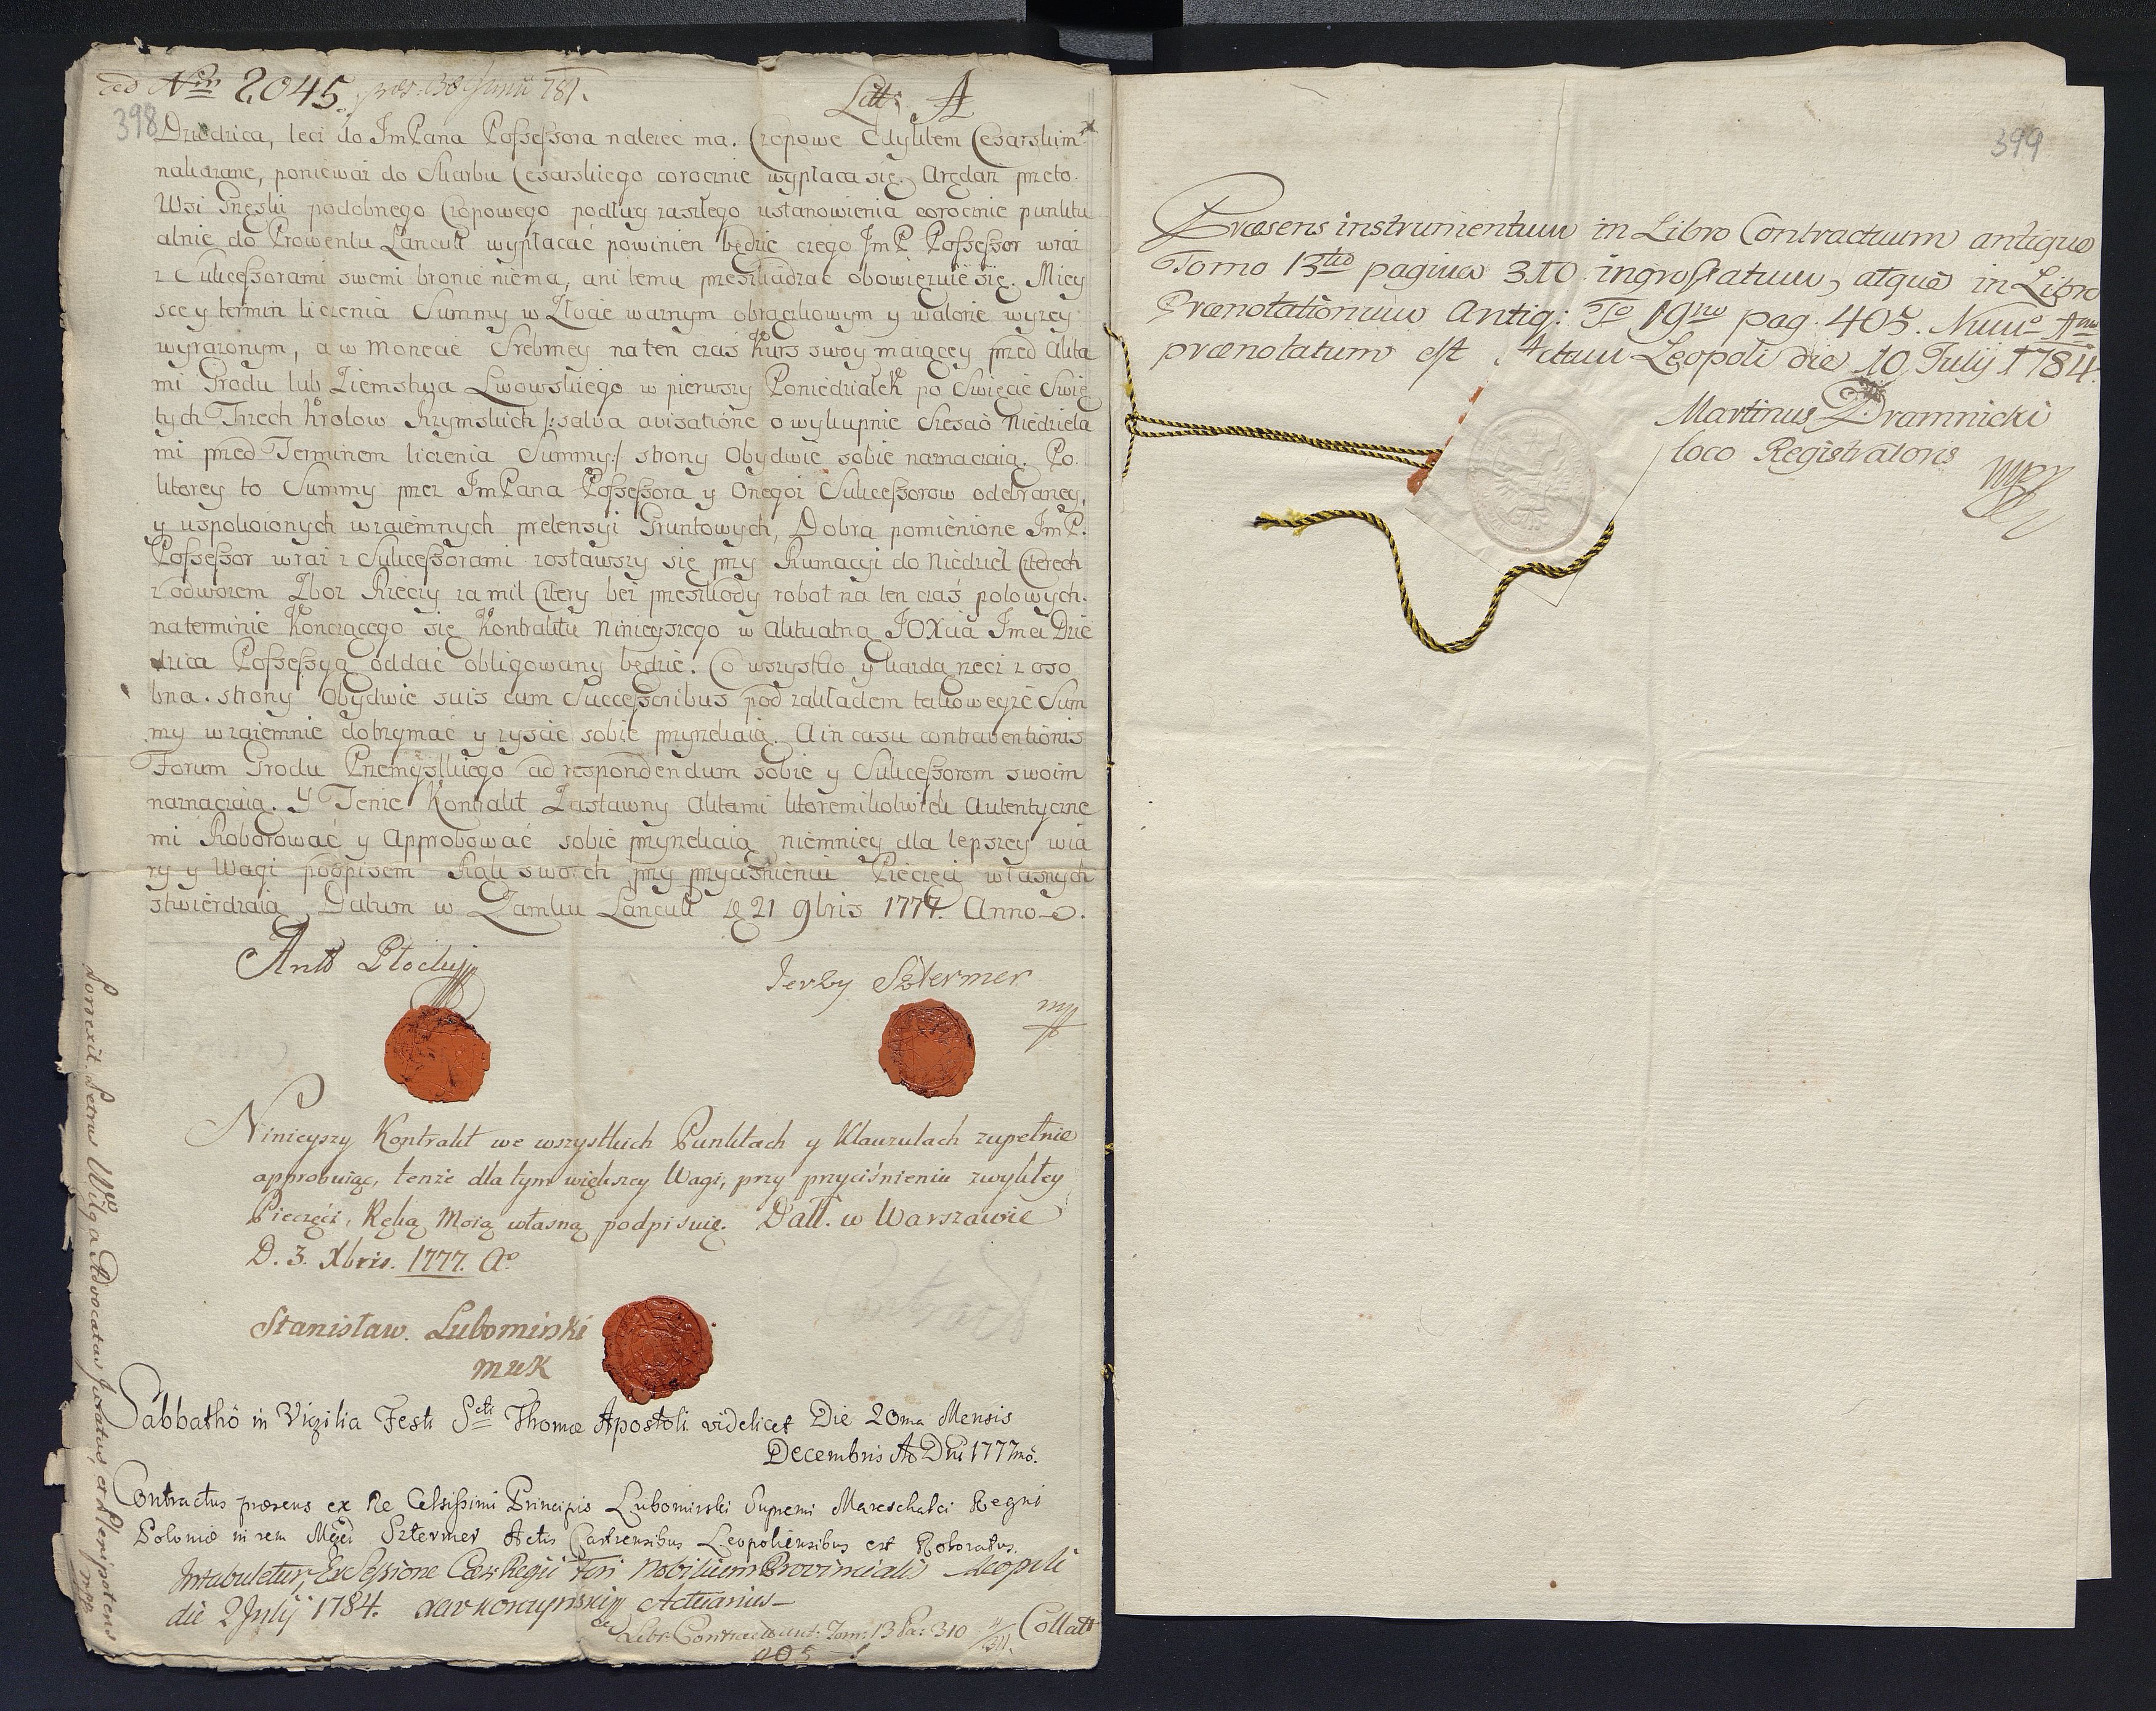 ad Nrm 2045. pres. 30 Junii 781.
Litt: A
398
Dziedzica, lecz do JmPana Possessora nalezec ma. Czopowe Edyktem Cesarskim
nakazane, poniewaz do Skarbu Cesarskiego corocznie wypłaca się. Arędarz przeto
Wsi podobnego Czopowego podług zaszłego ustanowienia corocznie punktu
alnie do Prowentu Lancutt wypłacać powinien będzie czego JmP. Possessor wraz
z Sukcessorami swemi bronic niema, ani temu przeszkadzac obowięzuie się. Miey
sce y termin liczenia Summy w Złocie waznym obrączkowym y walorze wyzey
wyrazonym, a w Monecie Srebrney na ten czas kurs swoy maiącey przed Akta
mi Grodu lub Ziemstwa Lwowskiego w pierwszy Poniedziałek po Swięcie Swię
tych Trzech Krolow Rzymskich /:salva avisatione o wykupnie Szescio Niedziela
mi przed Terminem liczenia Summy:/ strony Obydwie sobie naznaczaią. Po
ktorey to Summy przez JmPana Possessora y Onegoz Sukcessorow odebraney,
y uspokoionych wzaiemnych pretensyi Gruntowych, Dobra pomienione JmP.
Possessor wraz z Sukcessorami zostawszy się przy Rumacyi do Niedziel Czterech
z odwozem Zboz Rzeczy za mil Cztery bez przeszkody robot na ten czas polowych.
na terminie Konczącego się Kontraktu Ninieyszego w Aktualną JOXcia Jmci Dzie
dzica Possessyą oddać obligowany będzie. Co wszystko y kazdą rzecz z oso
bna. strony Obydwie suis cum Successoribus pod zakładem takoweyze Sum
my wzaiemnie dotrzymać y ziscic sobie przyrzekaią. A in casu contraventionis
Forum Grodu Przemyslkiego ad respondendum sobie y Sukcessorom swoim
naznaczaią. Y Tenze Kontrakt Zastawny Aktami ktoremikolwiek Autentyczne
mi Roborować y Approbować sobie przyrzekaią niemniey dla lepszey wia
ry y Wagi podpisem Rąk swoich przy przycisnieniu Pieczęci własnych
stwierdzaią Datum w Zamku Lancutt D. 21 9bris 1777. Anno.
Antt Płochy
Jerzy Sztermer
mp
Ninieyszy Kontrakt we wszystkich Punktach y Klauzulach zupełnie
approbuiąc, tenze dla tym większey Wagi, przy przyciśnieniu zwykłey
Pieczęci, Ręką Moią własną podpisuię. Datt. w Warszawie
D. 3. Xbris. 1777. Ao
Stanisław. Lubomirski
MWK
Sabbatho in Vigilia Festi Scti Thomæ Apostoli videlicet Die 20ma Mensis
Decembris Ao Dni 1777mo.
Contractus præsens ex Re Celsissimi Principis Lubomirski Supremi Mareschalci Regni
Poloniæ in rem Sztermer Actis Castrensibus Leopoliensibus est Roboratus.
Intabuletur, Ex Sessione Cæs: Regii Fori Nobilium Provincialis Leopoli
die 2 Julij 1784. Actuarius
Libr. Contractuum ant: Tom: 13 Pa: 310 Collatt
405
Porrexit Petrus Wilga Advocatus Juratus, et Plenipotens
mpp
399
Præsens instrumentum in Libro Contractuum antiquo
Tomo 13tio pagina 310 ingrossatum, atque in Libro
Prænotationum Antiq: To 19no pag. 405. Numo 4to
prænotatum est Actum Leopoli die 10 Julij 1784.
Martinus Dramnicki
loco Registratoris
mpp